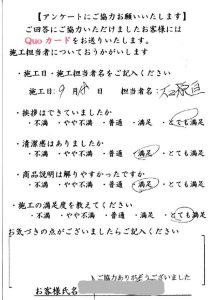 【アンケートにご協力お願いいたします】
ご回答にご協力いただけましたお客様には
Quoカードをお送りいたします。
施工担当者についておうかがいします
・施工日・施工担当者名をご記入ください
施工日: 9月 日 担当者名:
・挨拶はできていましたか
・不満 ・やや不満 ・普通 ・満足 ・とても満足
・清潔感はありましたか
・不満 ・やや不満 ・普通 ・満足 ・とても満足
・商品説明は解りやすかったですか
・不満 ・やや不満 ・普通 ・満足 ・とても満足
・施工の満足度を教えてください
・不満 ・やや不満 ・普通 ・満足 ・とても満足
お気づきの点がございましたらご記入ください
ご協力ありがとうございました
お客様氏名